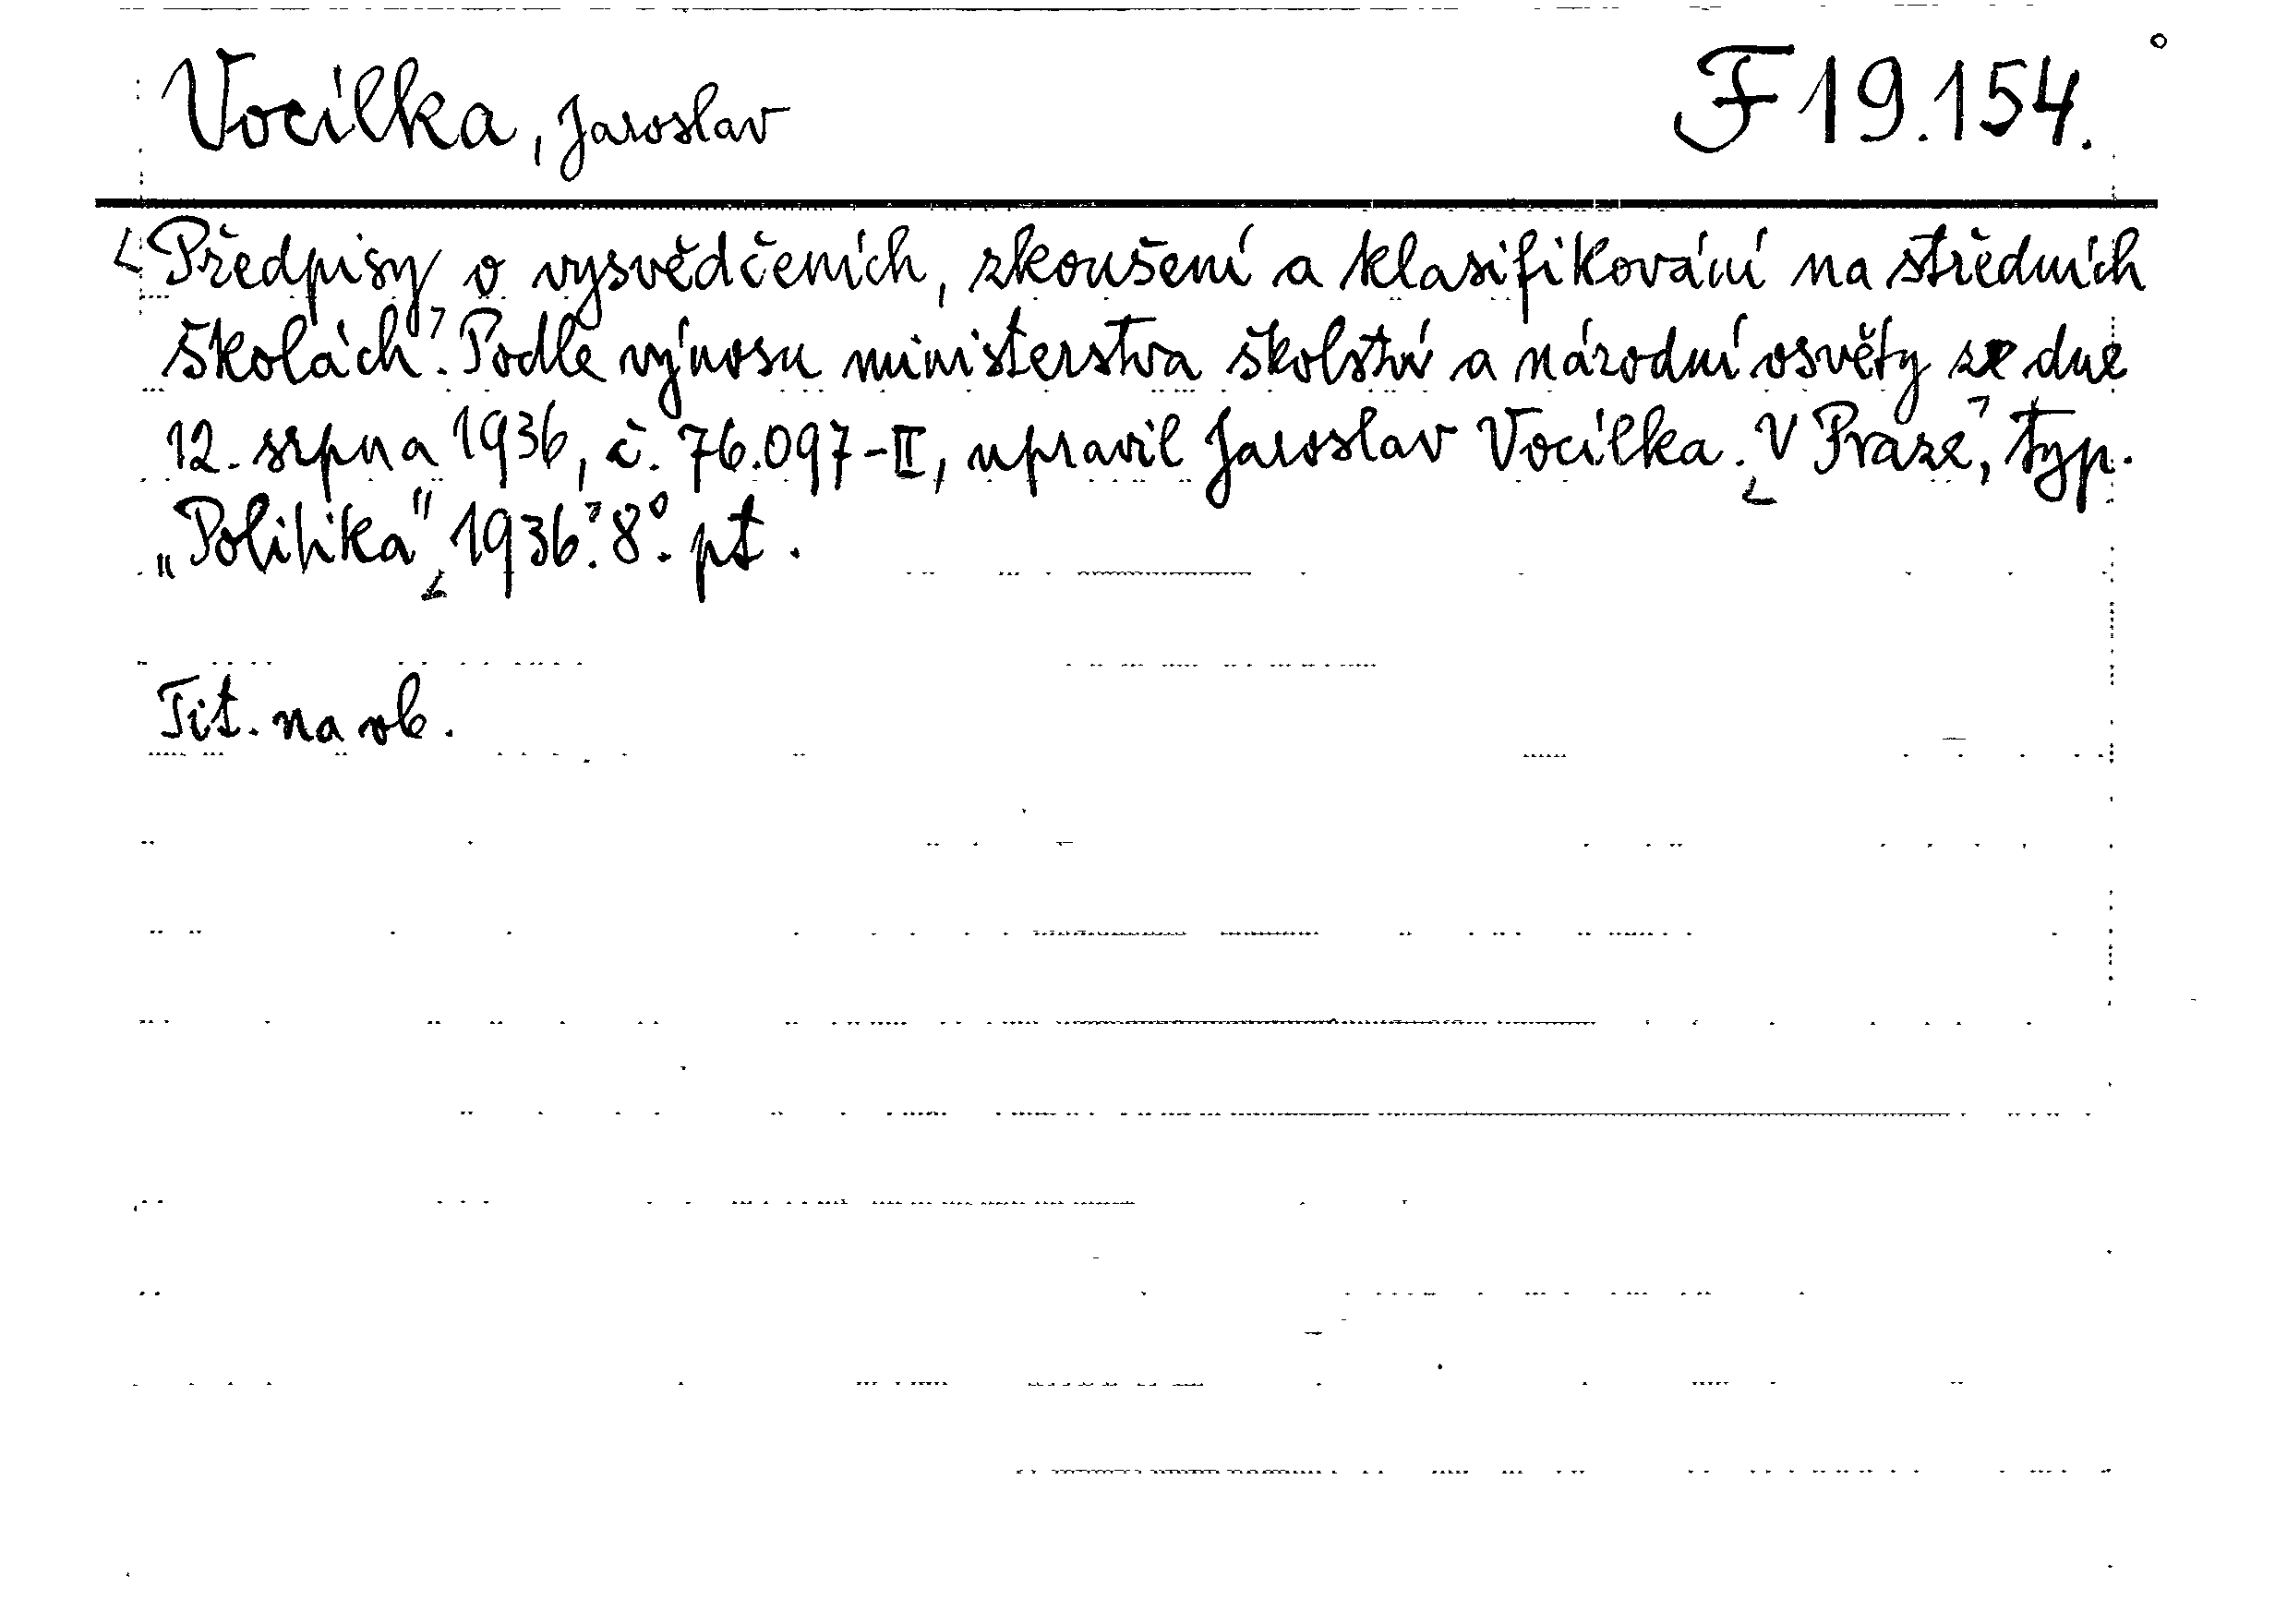 Vocílka, Jaroslav F 19.154.
Předpisy o vysvědčeních, zkoušení a klasifikování na středních
školách. Podle výnosu ministerstva školství a národní osvěty ze dne
12. srpna 1936, č. 76.097-II, upravil Jaroslav Vocílka. V Praze, typ.
„Politika" 1936. 8°. pt.
Tit. na ob.